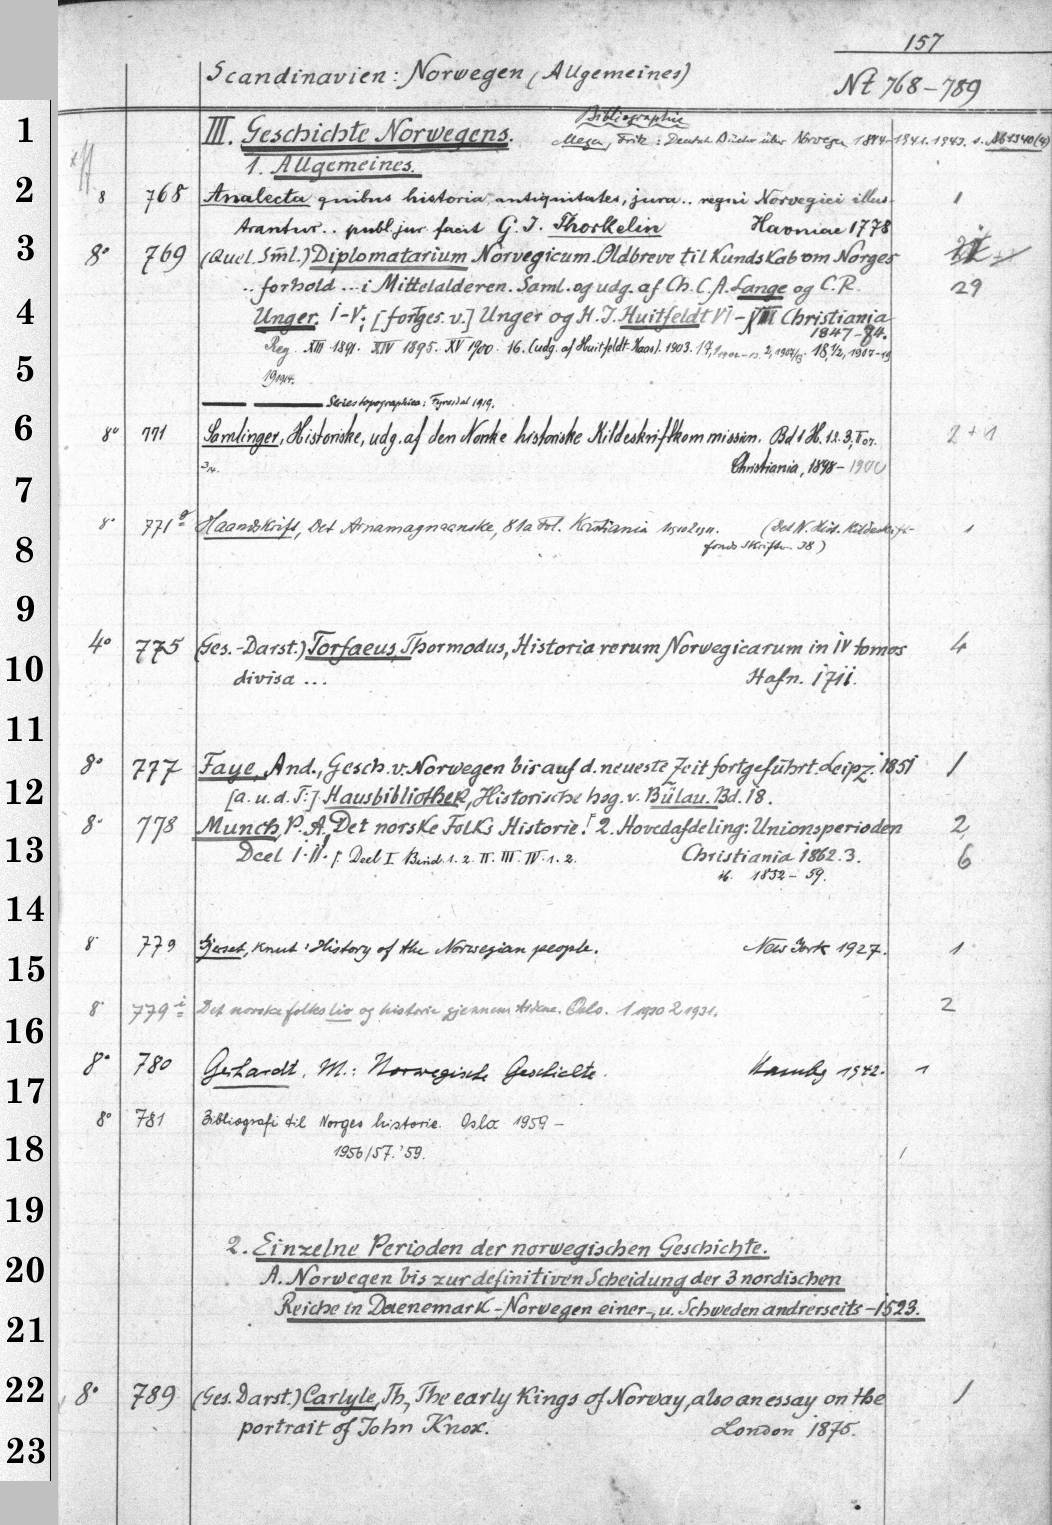 157
Scandinavien: Norwegen (Allgemeines)
Nt 768-789
1 III. Geschichte Norwegens. Bibliographie
Meyen, Fritz: Deutsche Bücher über Norwegen 1844-1941. 1943. s.
1. Allgemeines.
2 8 768 Analecta quibus historia, antiquitates, jura.. regni Norvegici illus- 1
trantur.. publ. jur. facit G. J. Thorkelin Havniae 1778
3 8° 769 (Quel. Sml.) Diplomatarium Norvegicum. Oldbreve til Kundskab om Norges
..forhold ... i Mittelalderen. Saml. og udg. af Ch. C. A. Lange og C. R. 29
4 Unger. I-V; [fortges. v.] Unger og H. J. Huitfeldt VI-XIII Christiania
1847-84.
Reg. XIII 1891. XIV 1895. XV 1900. 16. (udg. af Huitfeldt-Kaas). 1903. 17,
5 19
Series topographica: Tyresdal 1919.
6 8° 771 Samlinger, Historiske, udg. af den Norske historiske Kildeskriftkommission. Bd 1 H. 1.2.3, 2+1
Christiania, 1898-1900
7
8 8° 771 a Haandskrift, Det Arnamagnaeanske, 81a Fol. Kristiania (Det N. Hist. Kildeskrift-
fonds Skrifter. 38) 1
9
10 4° 775 (Ges.-Darst.) Torfaeus, Thormodus, Historia rerum Norwegicarum in IV tomos 4
divisa ... Hafn. 1711.
11
12 8° 777 Faye, And., Gesch. v. Norwegen bis auf d. neueste Zeit fortgeführt. Leipz. 1851 1
[a. u. d. T:] Hausbibliothek, Historische hsg. v. Bülau. Bd. 18.
13 8° 778 Munch, P. A. Det norske Folks Historie. 2. Hovedafdeling: Unionsperioden 2,
Deel I. II. Deel I Bind. 1. 2. II. III. IV. 1. 2. Christiania 1862. 3. 6
ib. 1852-59.
14
15 8° 779 Gjerset, Knut: History of the Norwegian people. New York 1927. 1
16 8° 779 i Det norske folks liv og historie gjennem tidene. Oslo. 1 1930 2 1931. 2
17 8° 780 Gerhardt, M.: Norwegische Geschichte. Hambg 1942. 1
18 8° 781 Bibliografi til Norges historie. Oslo 1959 -
1956/57. '59. 1
19
20 2. Einzelne Perioden der norwegischen Geschichte.
A. Norwegen bis zur definitiven Scheidung der 3 nordischen
21 Reiche in Daenemark-Norwegen einer-, u. Schweden andrerseits -1523.
22 8° 789 (Ges. Darst.) Carlyle, Th, The early Kings of Norway, also an essay on the 1
23 portrait of John Knox. London 1875.